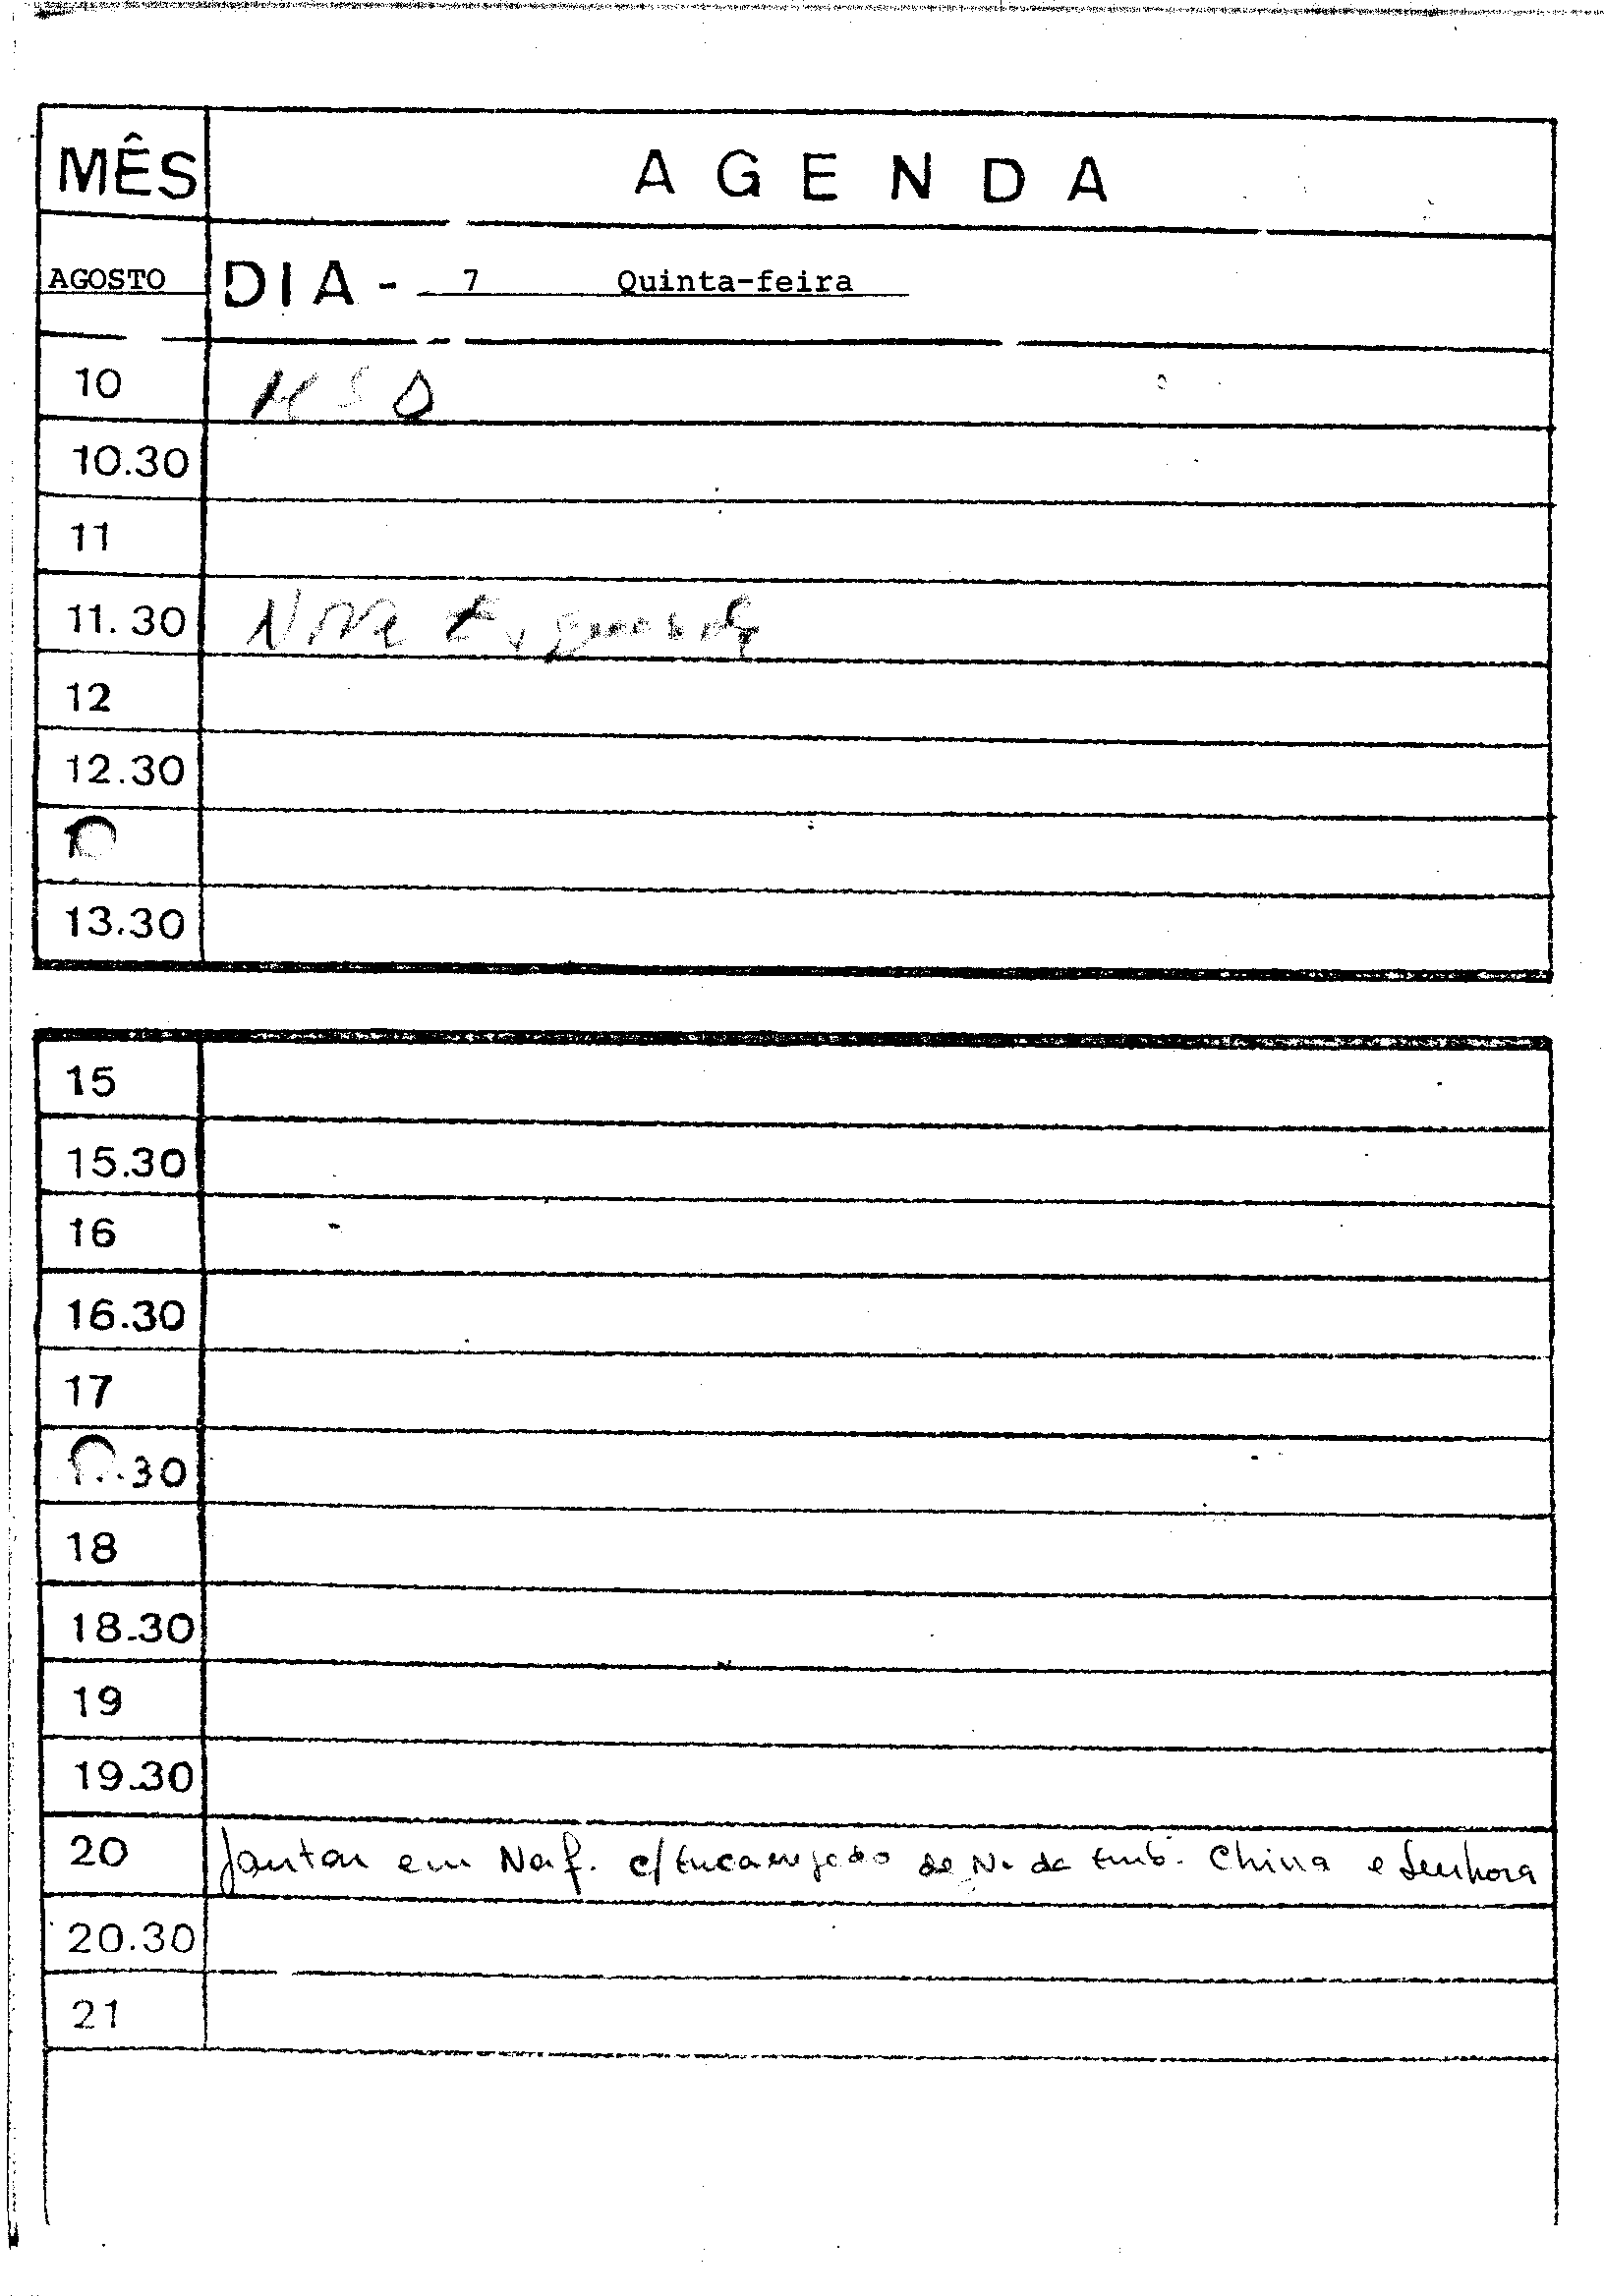 MÊS AGENDA
AGOSTO DIA - 7 Quinta-feira
10 MSD
10.30
11
11.30
12
12.30
13.30
15
15.30
16
16.30
17
.30
18
18.30
19
19.30
20 Jantar em Naf. c/ Encarregado de N. da Emb. China e Senhora
20.30
21